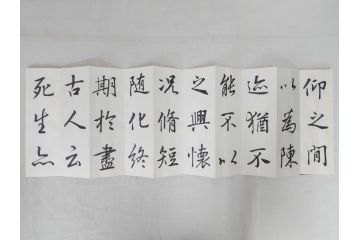 仰之間
以為陳
迹猶不
能不以
之興懷
况脩短
随化終
期於盡
古人云
死生亦